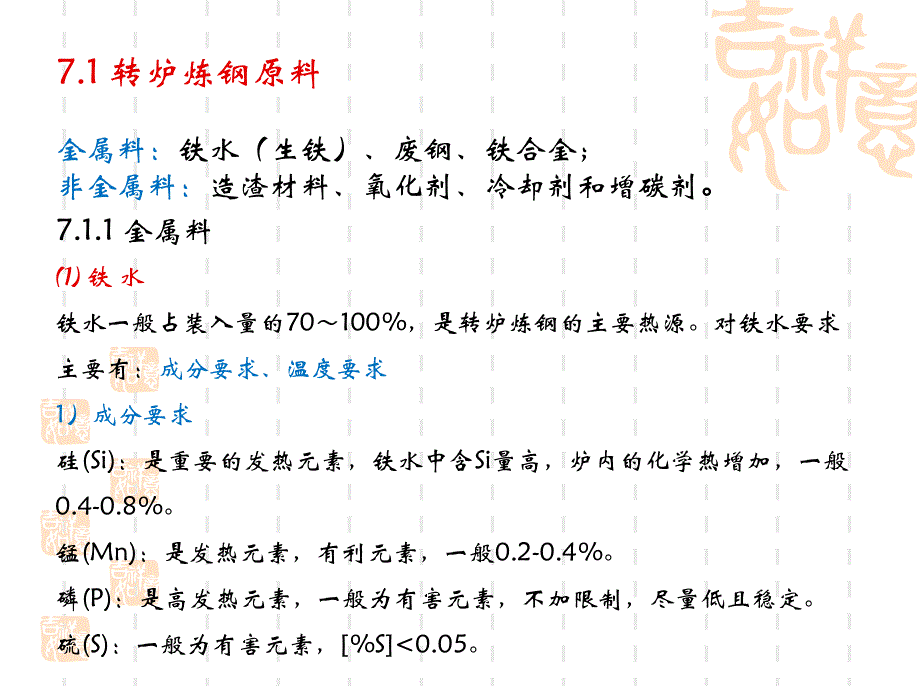 吉祥如意
7.1 转炉炼钢原料
金属料：铁水（生铁）、废钢、铁合金；
非金属料：造渣材料、氧化剂、冷却剂和增碳剂。
7.1.1 金属料
(1) 铁 水
铁水一般占装入量的70～100%，是转炉炼钢的主要热源。对铁水要求
主要有：成分要求、温度要求
1）成分要求
硅(Si)：是重要的发热元素，铁水中含Si量高，炉内的化学热增加，一般
0.4-0.8%。
锰(Mn)：是发热元素，有利元素，一般0.2-0.4%。
磷(P)：是高发热元素，一般为有害元素，不加限制，尽量低且稳定。
硫(S)：一般为有害元素，[%S]<0.05。